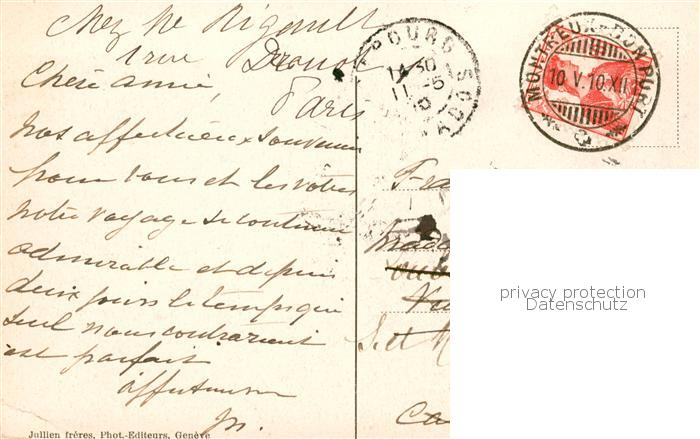 Chez Me Rigault
1 rue Drouot
Paris
Chère amie,
nos affectueux souvenirs
pour vous et les vôtres
notre voyage se continue
admirable et depuis
deux jours le temps qui
seul nous contrariait
est parfait
affectueusement
MONTREUX-BON PORT
10.V.10.XII
BOURG
14 30
11-5
10
Fra
Mada
S. et M
Ca
privacy protection
Datenschutz
Jullien fréres, Phot.-Editeurs, Genève